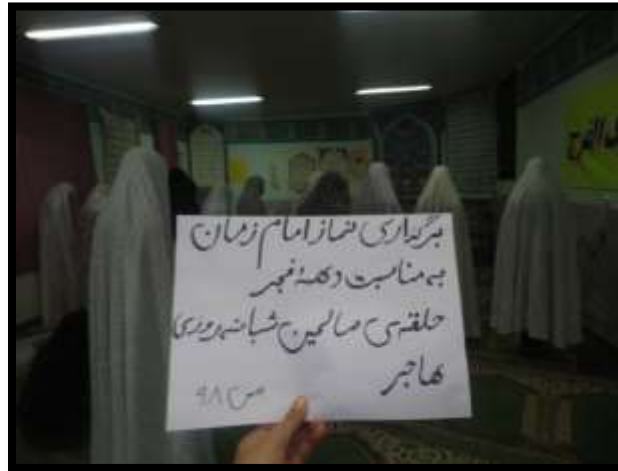 برگذاری نماز امام زمان
به مناسبت دههٔ فجر
حلقه‌ی صالحین شبانه‌روزی
هاجر
ص ۹۸